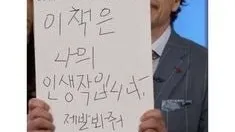 이 책은
나의
인생작입니다.
제발봐줘